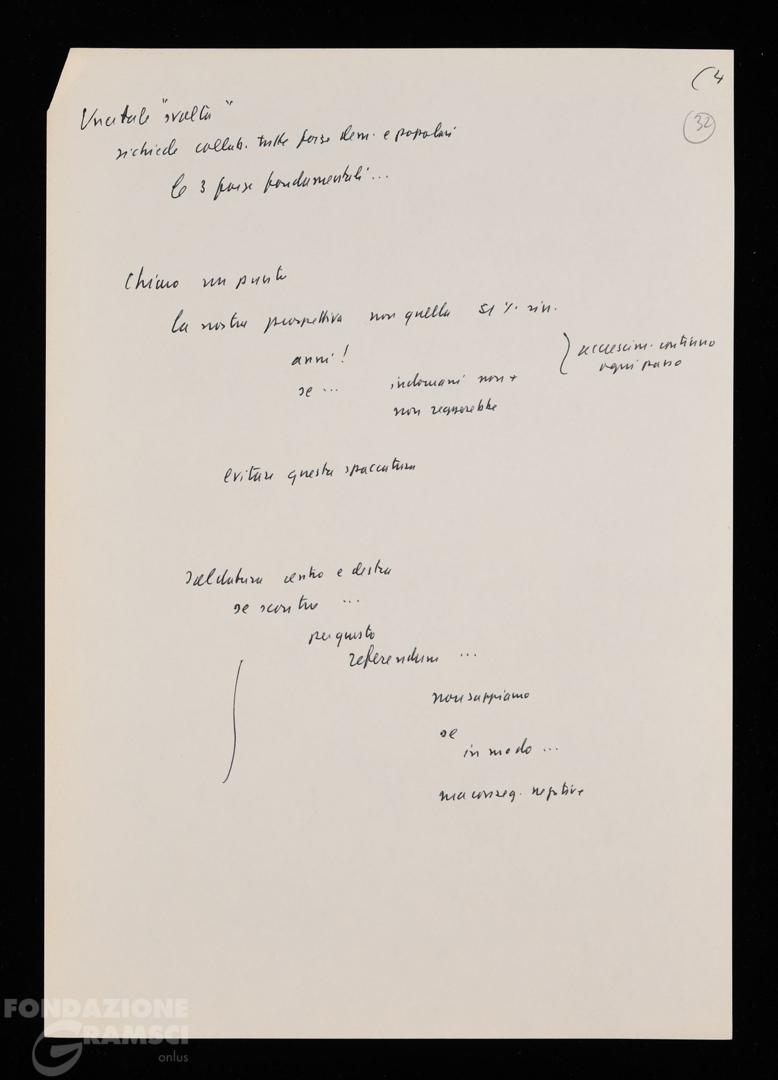 (4
32
Una tale "svolta"
richiede collab. tutte forze dem. e popolari
le 3 forze fondamentali...
Chiaro un punto
la nostra prospettiva non quella 51% sin.
anni!
se ... indomani non +
non reggerebbe
} accrescim. continuo
ogni passo
evitare questa spaccatura
saldatura centro e destra
se scontro ...
per questo
referendum ...
non sappiamo
se
in modo ...
ma conseg. negative
FONDAZIONE
GRAMSCI
onlus